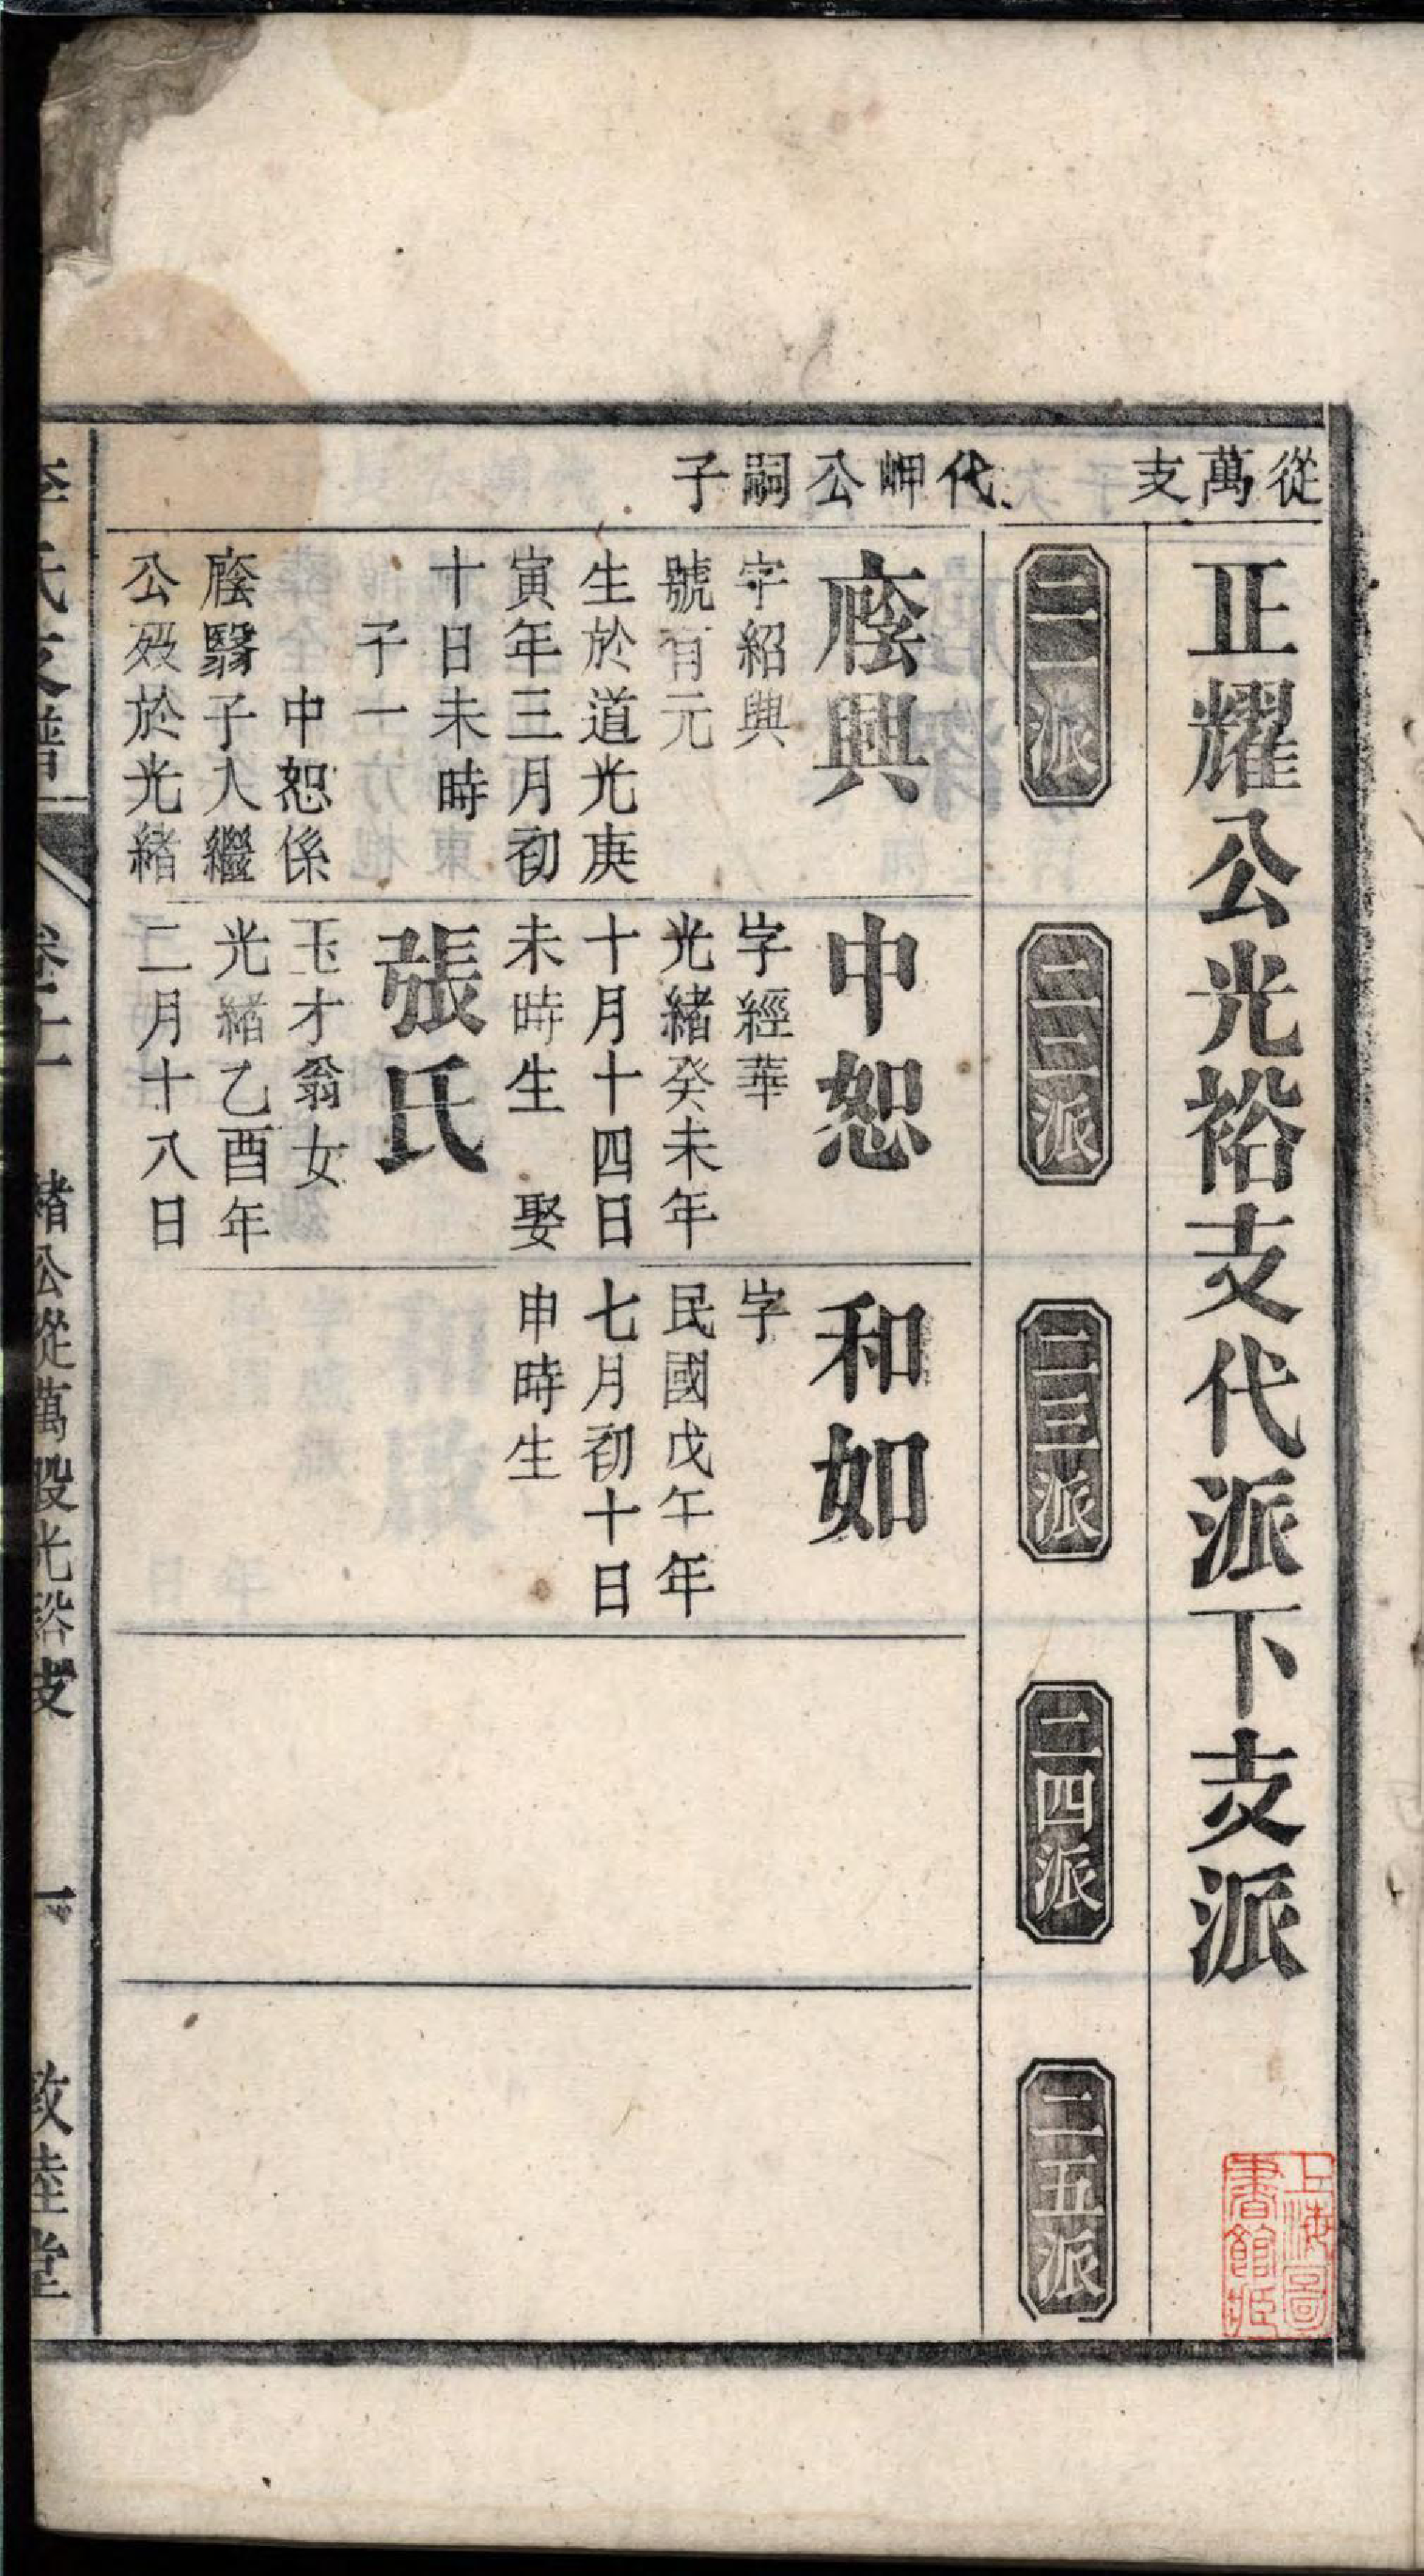 從萬支
正耀公光裕支代派下支派
二一派
二二派
二三派
二四派
二五派
代岬公嗣子
廕興
字紹興
號有元
生於道光庚
寅年三月初
十日未時
子一
中恕係
廕翳子入繼
公殁於光緒
中恕
字經華
光緒癸未年
十月十四日
未時生 娶
張氏
玉才翁女
光緒乙酉年
二月十八日
和如
字
民國戊午年
七月初十日
申時生
氏支譜
卷十一
緒公從萬股光裕支
一
敦睦堂
上海圖
書館